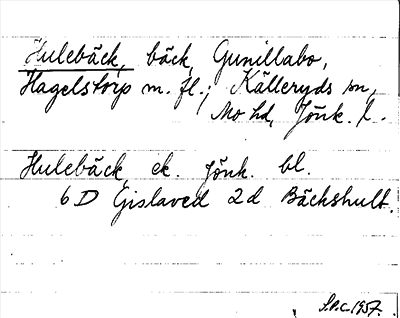 Hulebäck, bäck, Gunillabo,
Hagelstorp m. fl.; Källeryds sn,
Mo hd, Jönk. l.
Hulebäck ek. Jönk. bl.
6 D Gislaved 2 d Bäckshult.
S.P.C. 1957.